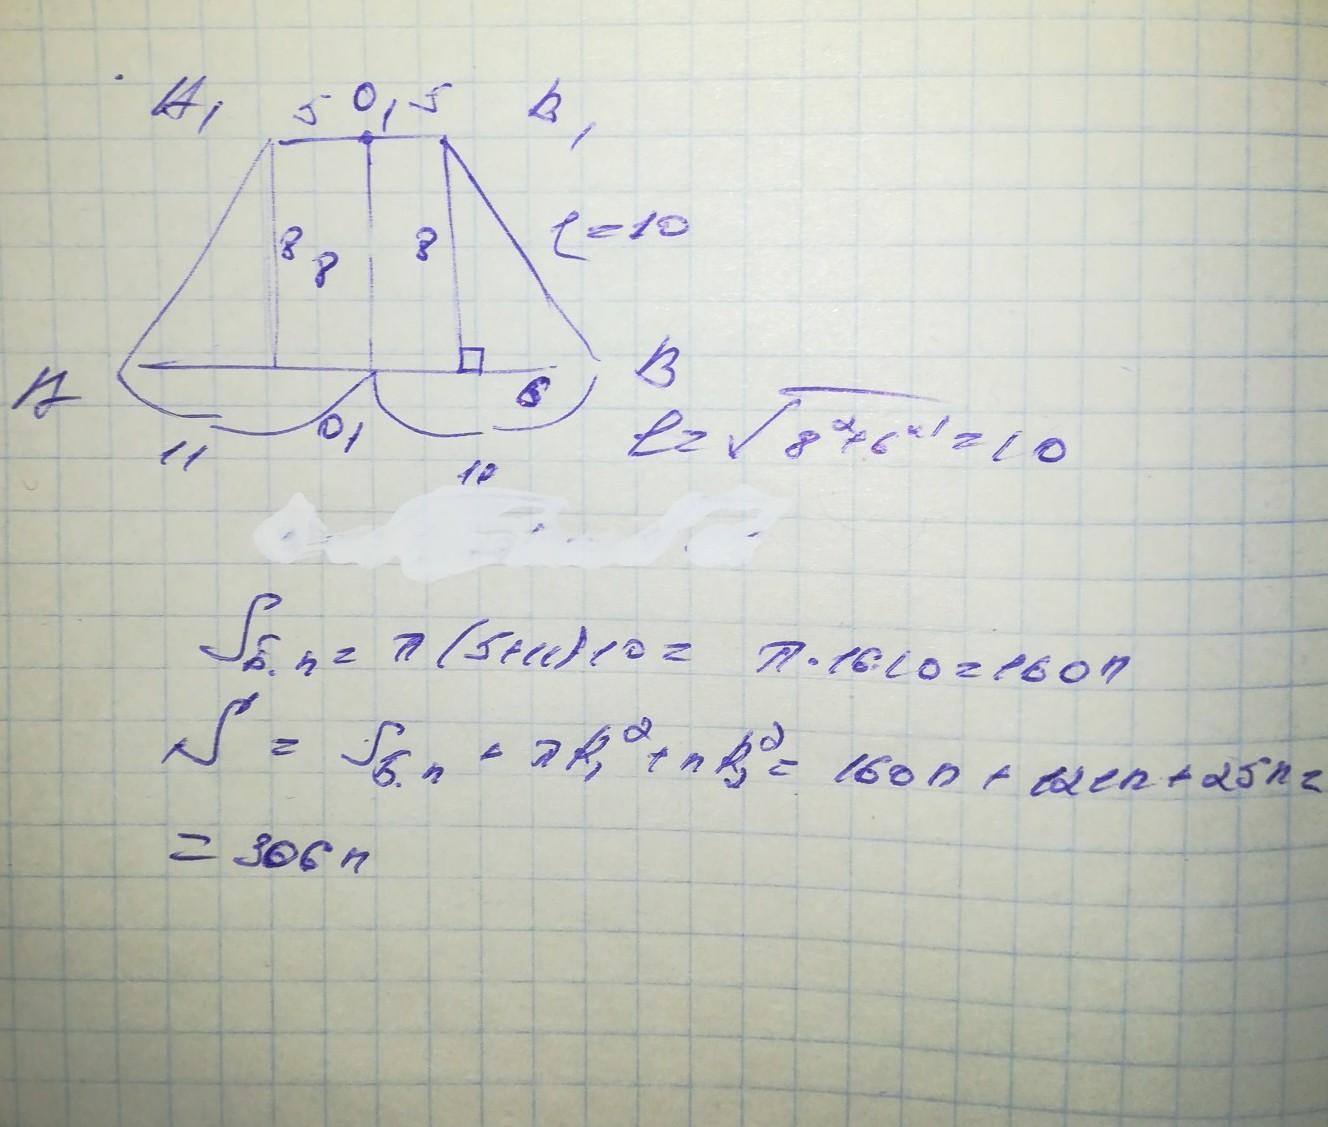 A₁ 5 O₁ 5 B₁
8 8 8 l = 10
A B
6
11 O₁ 11
l = √8²+6² = 10
Sб.п = π(5+11)10 = π·16·10 = 160π
S = Sб.п + πR₁² + πR₂² = 160π + 121π + 25π =
= 306π